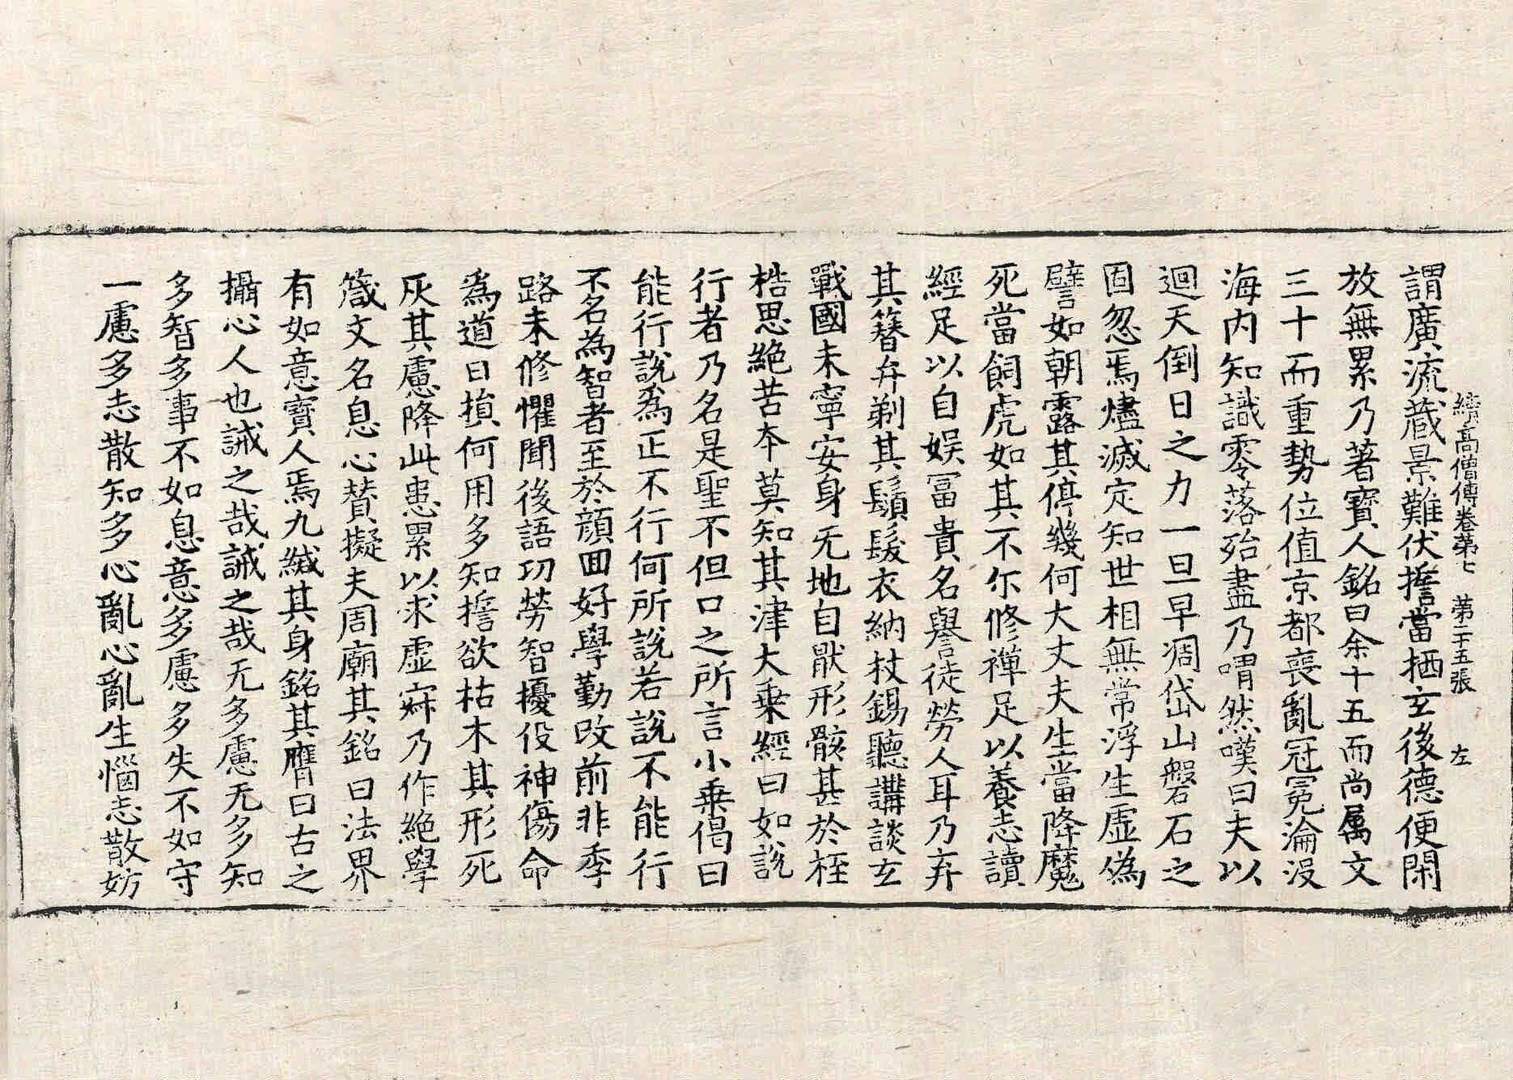 續高僧傳卷第七　第二十五張　左
謂廣流藏景難伏擔當栖玄後德便閑
放無累乃著寶人銘曰余十五而尚属文
三十而重勢位值京都喪亂冠冕淪没
海内知識零落殆盡乃喟然嘆曰夫以
迴天倒日之力一旦早凋岱山磐石之
固忽焉燼滅定知世相無常浮生虛偽
譬如朝露其停幾何大丈夫生當降魔
死當飼虎如其不尓修禪足以養志讀
經足以自娱富貴名譽徒勞人耳乃弃
其簪弁剃其鬚髮衣納杖錫聽講談玄
戰國未寧安身无地自猒形骸甚於桎
梏思絶苦本莫知其津大乗經曰如說
行者乃名是聖不但口之所言小乗偈曰
能行說為正不行何所說若說不能行
不名為智者至於顔回好學勤改前非季
路未修懼聞後語功勞智擾役神傷命
為道日損何用多知擔欲枯木其形死
灰其慮降此患累以求虛寂乃作絶學
箴文名息心賛擬夫周廟其銘曰法界
有如意寶人焉九緘其身銘其膺曰古之
攝心人也誡之哉誡之哉无多慮无多知
多智多事不如息意多慮多失不如守
一慮多志散知多心亂心亂生惱志散妨